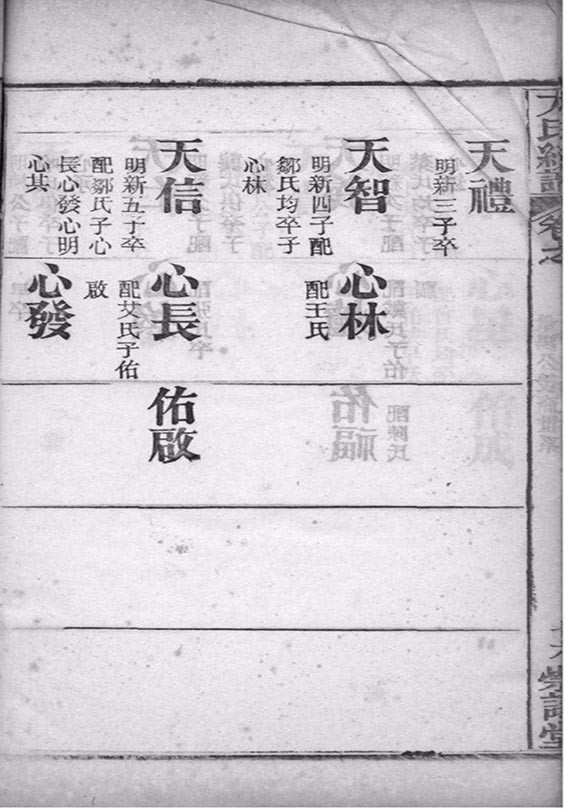 天禮
明新三子卒
天智
明新四子配
鄒氏均卒子
心林
天信
明新五子卒
配鄒氏子心
長心發心明
心其
心林
配王氏
心長
配艾氏子佑
啟
心發
佑啟